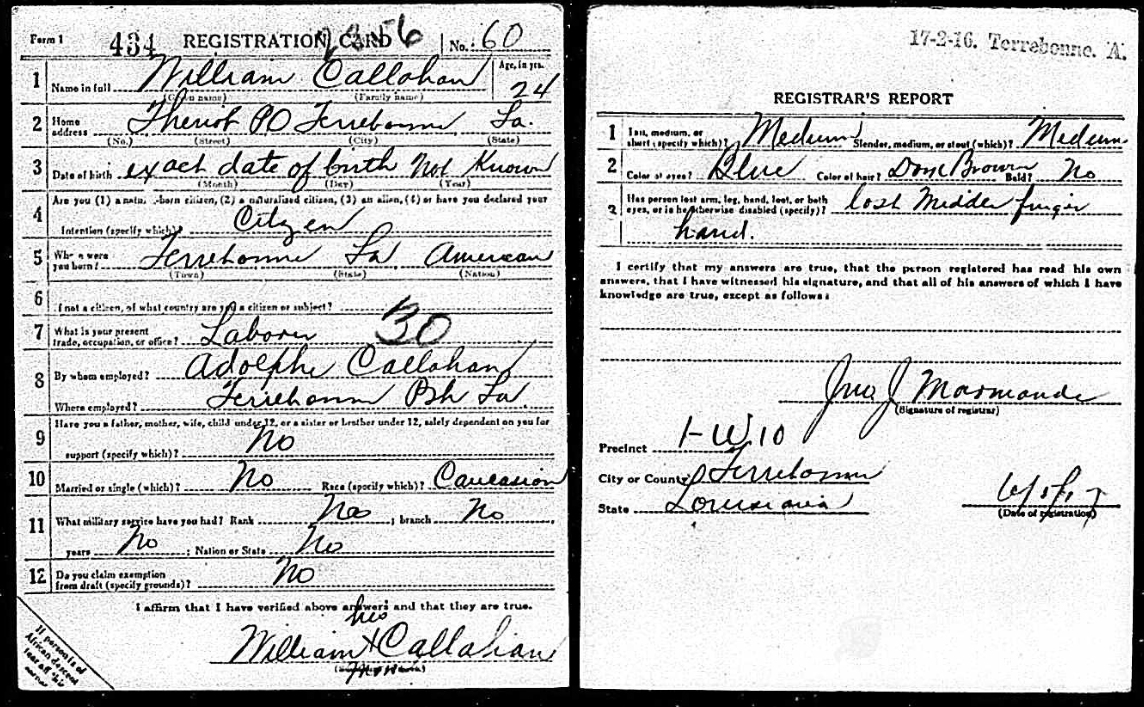 Form 1 434 REGISTRATION CARD No. 60
1 Name in full William Callahan Age, in yrs. 24
(Given name) (Family name)
2 Home address Theriot PO Terrebonne La.
(No.) (Street) (City) (State)
3 Date of birth exact date of birth Not Known
(Month) (Day) (Year)
4 Are you (1) a natural-born citizen, (2) a naturalized citizen, (3) an alien, (4) or have you declared your
Intention (specify which)? Citizen
5 Where were you born? Terrebonne La American
(Town) (State) (Nation)
6 If not a citizen, of what country are you a citizen or subject?
7 What is your present trade, occupation, or office? Laborer 30
8 By whom employed? Adolphe Callahan
Where employed? Terrebonne Psh La
9 Have you a father, mother, wife, child under 12, or a sister or brother under 12, solely dependent on you for
support (specify which)? No
10 Married or single (which)? No Race (specify which)? Caucasion
11 What military service have you had? Rank No ; branch No ,
years No ; Nation or State No
12 Do you claim exemption from draft (specify grounds)? No
I affirm that I have verified above answers and that they are true.
his
William X Callahan
If person is of African descent tear off this corner
17-2-16. Terrebonne. A.
REGISTRAR'S REPORT
1 Tall, medium, or short (specify which)? Medium Slender, medium, or stout (which)? Medium
2 Color of eyes? Blue Color of hair? Brown Bald? No
3 Has person lost arm, leg, hand, foot, or both eyes, or is he otherwise disabled (specify)? lost Middle finger
hand.
I certify that my answers are true, that the person registered has read his own
answers, that I have witnessed his signature, and that all of his answers of which I have
knowledge are true, except as follows:
Jno J Marmande
(Signature of registrar)
Precinct 1-W 10
City or County Terrebonne
State Louisiana
6/5/17
(Date of registration)